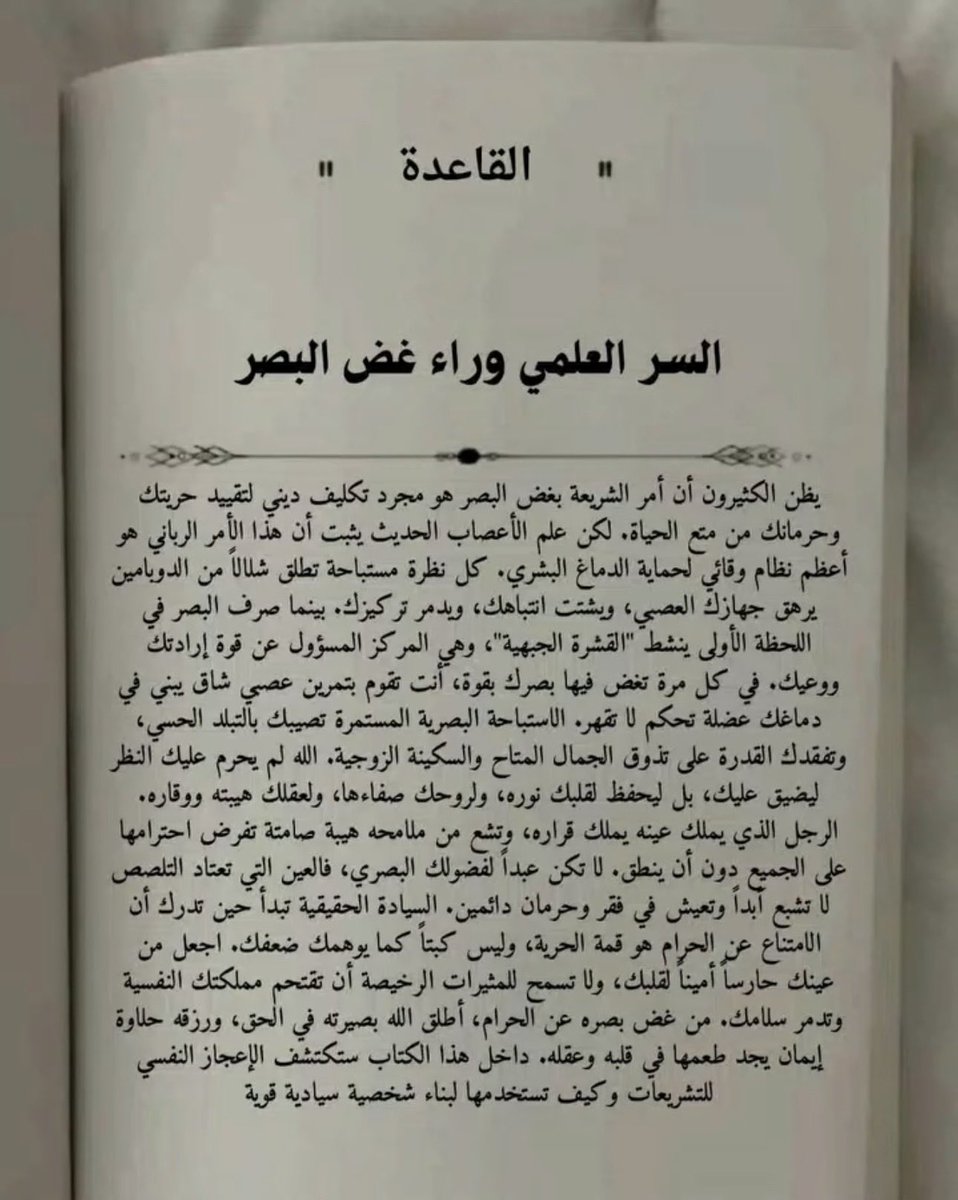 " القاعدة "
السر العلمي وراء غض البصر
يظن الكثيرون أن أمر الشريعة بغض البصر هو مجرد تكليف ديني لتقييد حريتك
وحرمانك من متع الحياة. لكن علم الأعصاب الحديث يثبت أن هذا الأمر الرباني هو
أعظم نظام وقائي لحماية الدماغ البشري. كل نظرة مستباحة تطلق شلالاً من الدوبامين
يرهق جهازك العصبي، ويشتت انتباهك، ويدمر تركيزك. بينما صرف البصر في
اللحظة الأولى ينشط "القشرة الجبهية"، وهي المركز المسؤول عن قوة إرادتك
ووعيك. في كل مرة تغض فيها بصرك بقوة، أنت تقوم بتمرين عصبي شاق يبني في
دماغك عضلة تحكم لا تقهر. الاستباحة البصرية المستمرة تصيبك بالتبلد الحسي،
وتفقدك القدرة على تذوق الجمال المتاح والسكينة الزوجية. الله لم يحرم عليك النظر
ليضيق عليك، بل ليحفظ لقلبك نوره، ولروحك صفاءها، ولعقلك هيبته ووقاره.
الرجل الذي يملك عينه يملك قراره، وتشع من ملامحه هيبة صامتة تفرض احترامها
على الجميع دون أن ينطق. لا تكن عبداً لفضولك البصري، فالعين التي تعتاد التلصص
لا تشبع أبداً وتعيش في فقر وحرمان دائمين. السيادة الحقيقية تبدأ حين تدرك أن
الامتناع عن الحرام هو قمة الحرية، وليس كبتاً كما يوهمك ضعفك. اجعل من
عينك حارساً أميناً لقلبك، ولا تسمح للمثيرات الرخيصة أن تقتحم مملكتك النفسية
وتدمر سلامك. من غض بصره عن الحرام، أطلق الله بصيرته في الحق، ورزقه حلاوة
إيمان يجد طعمها في قلبه وعقله. داخل هذا الكتاب ستكتشف الإعجاز النفسي
للتشريعات وكيف تستخدمها لبناء شخصية سيادية قوية